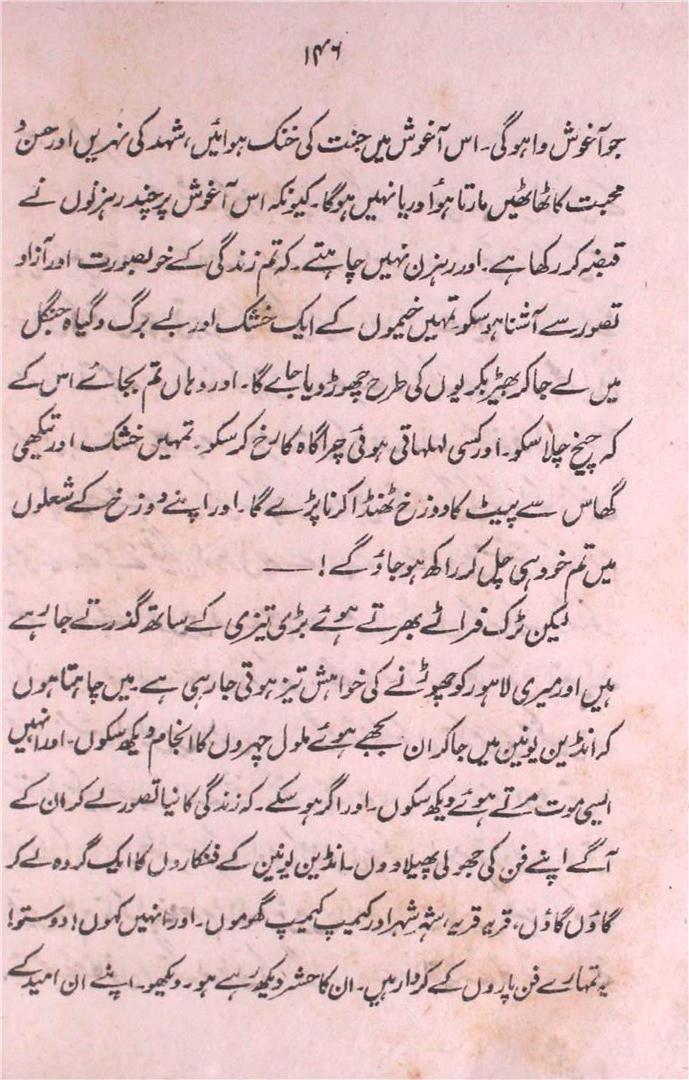 ۱۴۶
جو آغوش وا ہوگی۔ اس آغوش میں جنت کی خنک ہوائیں، شہد کی نہریں اور حسن و
محبت کا ٹھاٹھیں مارتا ہوا دریا نہیں ہوگا۔ کیونکہ اس آغوش پر چند رہزنوں نے
قبضہ کر رکھا ہے۔ اور رہزن نہیں چاہتے۔ کہ تم زندگی کے خوبصورت اور آزاد
تصور سے آشنا ہو سکو تمہیں خیموں کے ایک خشک اور بے برگ و گیاہ جنگل
میں لے جا کر بھیڑ بکریوں کی طرح چھوڑ دیا جائے گا۔ اور وہاں تم بجائے اس کے
کہ چیخ چلا سکو۔ اور کسی لہلہاتی ہوئی چراگاہ کا رخ کر سکو۔ تمہیں خشک اور تیکھی
گھاس سے پیٹ کا دوزخ ٹھنڈا کرنا پڑے گا۔ اور اپنے دوزخ کے شعلوں
میں تم خود ہی جل کر راکھ ہو جاؤ گے! —
لیکن ٹرک فراٹے بھرتے ہوئے بڑی تیزی کے ساتھ گذرتے جا رہے
ہیں اور میری لاہور کو چھوڑنے کی خواہش تیز ہوتی جا رہی ہے۔ میں چاہتا ہوں
کہ انڈین یونین میں جا کر ان بجھے ہوئے ملول چہروں کا انجام دیکھ سکوں۔ اور انہیں
ایسی موت مرتے ہوئے دیکھ سکوں۔ اور اگر ہو سکے۔ کہ زندگی کا نیا تصور لے کر ان کے
آگے اپنے فن کی جھولی پھیلا دوں۔ انڈین یونین کے فنکاروں کا ایک گروہ لے کر
گاؤں گاؤں، قریہ قریہ، شہر شہر اور کیمپ کیمپ گھوموں۔ اور انہیں کہوں! دوستو!
یہ تمہارے فن پاروں کے کردار ہیں۔ ان کا حشر دیکھ رہے ہو۔ دیکھو۔ اپنے ان امید کے